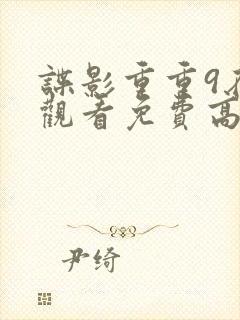 諜影重重9在
觀看免費高
尹绮